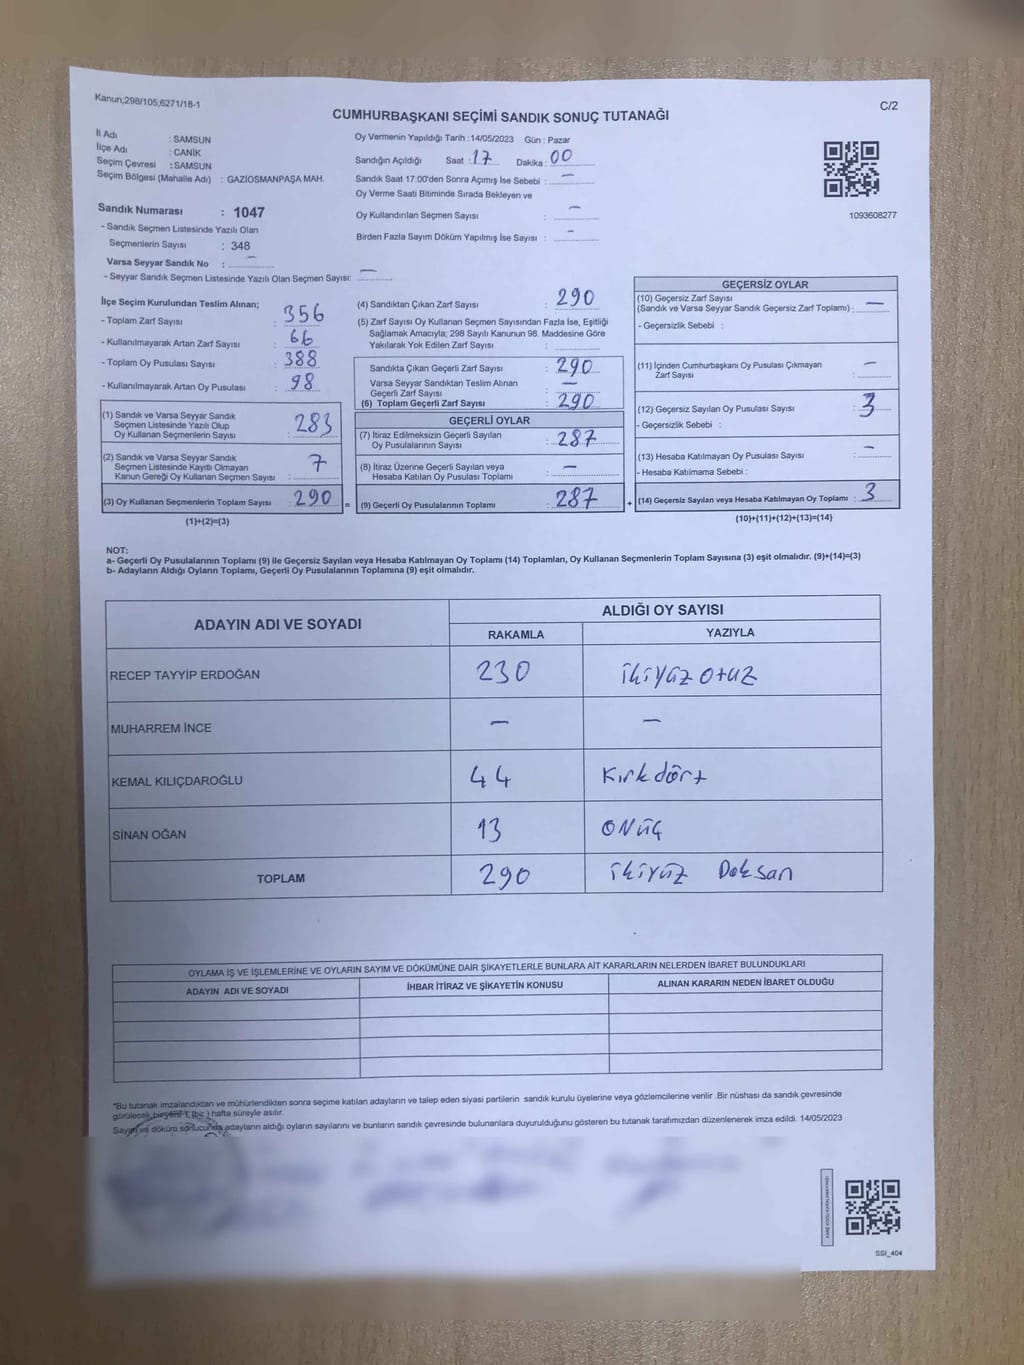 Kanun;298/105,6271/18-1
C/2
CUMHURBAŞKANI SEÇİMİ SANDIK SONUÇ TUTANAĞI
İl Adı : SAMSUN
İlçe Adı : CANİK
Seçim Çevresi : SAMSUN
Seçim Bölgesi (Mahalle Adı) : GAZİOSMANPAŞA MAH.
Sandık Numarası : 1047
- Sandık Seçmen Listesinde Yazılı Olan
Seçmenlerin Sayısı : 348
Varsa Seyyar Sandık No : —
- Seyyar Sandık Seçmen Listesinde Yazılı Olan Seçmen Sayısı: —
Oy Vermenin Yapıldığı Tarih :14/05/2023 Gün : Pazar
Sandığın Açıldığı Saat : 17 Dakika : 00
Sandık Saat 17:00'den Sonra Açımış İse Sebebi : —
Oy Verme Saati Bitiminde Sırada Bekleyen ve
Oy Kullandırılan Seçmen Sayısı : —
Birden Fazla Sayım Döküm Yapılmış İse Sayısı : -
1093608277
İlçe Seçim Kurulundan Teslim Alınan;
- Toplam Zarf Sayısı : 356
- Kullanılmayarak Artan Zarf Sayısı : 66
- Toplam Oy Pusulası Sayısı : 388
- Kullanılmayarak Artan Oy Pusulası : 98
(1) Sandık ve Varsa Seyyar Sandık
Seçmen Listesinde Yazılı Olup
Oy Kullanan Seçmenlerin Sayısı : 283
(2) Sandık ve Varsa Seyyar Sandık
Seçmen Listesinde Kayıtlı Olmayan
Kanun Gereği Oy Kullanan Seçmen Sayısı : 7
(3) Oy Kullanan Seçmenlerin Toplam Sayısı : 290 =
(1)+(2)=(3)
(4) Sandıktan Çıkan Zarf Sayısı : 290
(5) Zarf Sayısı Oy Kullanan Seçmen Sayısından Fazla İse, Eşitliği
Sağlamak Amacıyla; 298 Sayılı Kanunun 98. Maddesine Göre
Yakılarak Yok Edilen Zarf Sayısı :
Sandıkta Çıkan Geçerli Zarf Sayısı : 290
Varsa Seyyar Sandıktan Teslim Alınan
Geçerli Zarf Sayısı : —
(6) Toplam Geçerli Zarf Sayısı : 290
GEÇERLİ OYLAR
(7) İtiraz Edilmeksizin Geçerli Sayılan
Oy Pusulalarının Sayısı : 287
(8) İtiraz Üzerine Geçerli Sayılan veya
Hesaba Katılan Oy Pusulası Toplamı : —
(9) Geçerli Oy Pusulalarının Toplamı : 287 +
GEÇERSİZ OYLAR
(10) Geçersiz Zarf Sayısı
(Sandık ve Varsa Seyyar Sandık Geçersiz Zarf Toplamı) : —
- Geçersizlik Sebebi :
(11) İçinden Cumhurbaşkanı Oy Pusulası Çıkmayan
Zarf Sayısı : —
(12) Geçersiz Sayılan Oy Pusulası Sayısı : 3
- Geçersizlik Sebebi :
(13) Hesaba Katılmayan Oy Pusulası Sayısı : —
- Hesaba Katılmama Sebebi :
(14) Geçersiz Sayılan veya Hesaba Katılmayan Oy Toplamı : 3
(10)+(11)+(12)+(13)=(14)
NOT:
a- Geçerli Oy Pusulalarının Toplamı (9) ile Geçersiz Sayılan veya Hesaba Katılmayan Oy Toplamı (14) Toplamları, Oy Kullanan Seçmenlerin Toplam Sayısına (3) eşit olmalıdır. (9)+(14)=(3)
b- Adayların Aldığı Oyların Toplamı, Geçerli Oy Pusulalarının Toplamına (9) eşit olmalıdır.
ADAYIN ADI VE SOYADI
ALDIĞI OY SAYISI
RAKAMLA YAZIYLA
RECEP TAYYİP ERDOĞAN 230 ikiyüz otuz
MUHARREM İNCE — —
KEMAL KILIÇDAROĞLU 44 Kırkdört
SİNAN OĞAN 13 onüç
TOPLAM 290 ikiyüz Doksan
OYLAMA İŞ VE İŞLEMLERİNE VE OYLARIN SAYIM VE DÖKÜMÜNE DAİR ŞİKAYETLERLE BUNLARA AİT KARARLARIN NELERDEN İBARET BULUNDUKLARI
ADAYIN ADI VE SOYADI İHBAR İTİRAZ VE ŞİKAYETİN KONUSU ALINAN KARARIN NEDEN İBARET OLDUĞU
*Bu tutanak imzalandıktan ve mühürlendikten sonra seçime katılan adayların ve talep eden siyasi partilerin sandık kurulu üyelerine veya gözlemcilerine verilir .Bir nüshası da sandık çevresinde
görülecek bir yere 1 (bir ) hafta süreyle asılır.
Sayım ve döküm sonucunda adayların aldığı oyların sayılarını ve bunların sandık çevresinde bulunanlara duyurulduğunu gösteren bu tutanak tarafımızdan düzenlenerek imza edildi. 14/05/2023
SSI_404